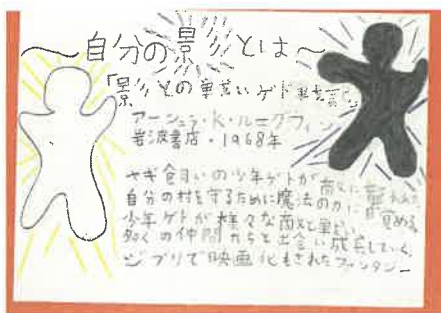 ～自分の影とは～
「影との戦い ゲド戦記」
アーシュラ・K・ル＝グウィン
岩波書店・1968年
ヤギ飼いの少年ゲドが敵に襲われた
自分の村を守るために魔法の力に目覚める
少年ゲドが様々な敵と戦い
多くの仲間たちと出会い成長していく。
ジブリで映画化もされたファンタジー